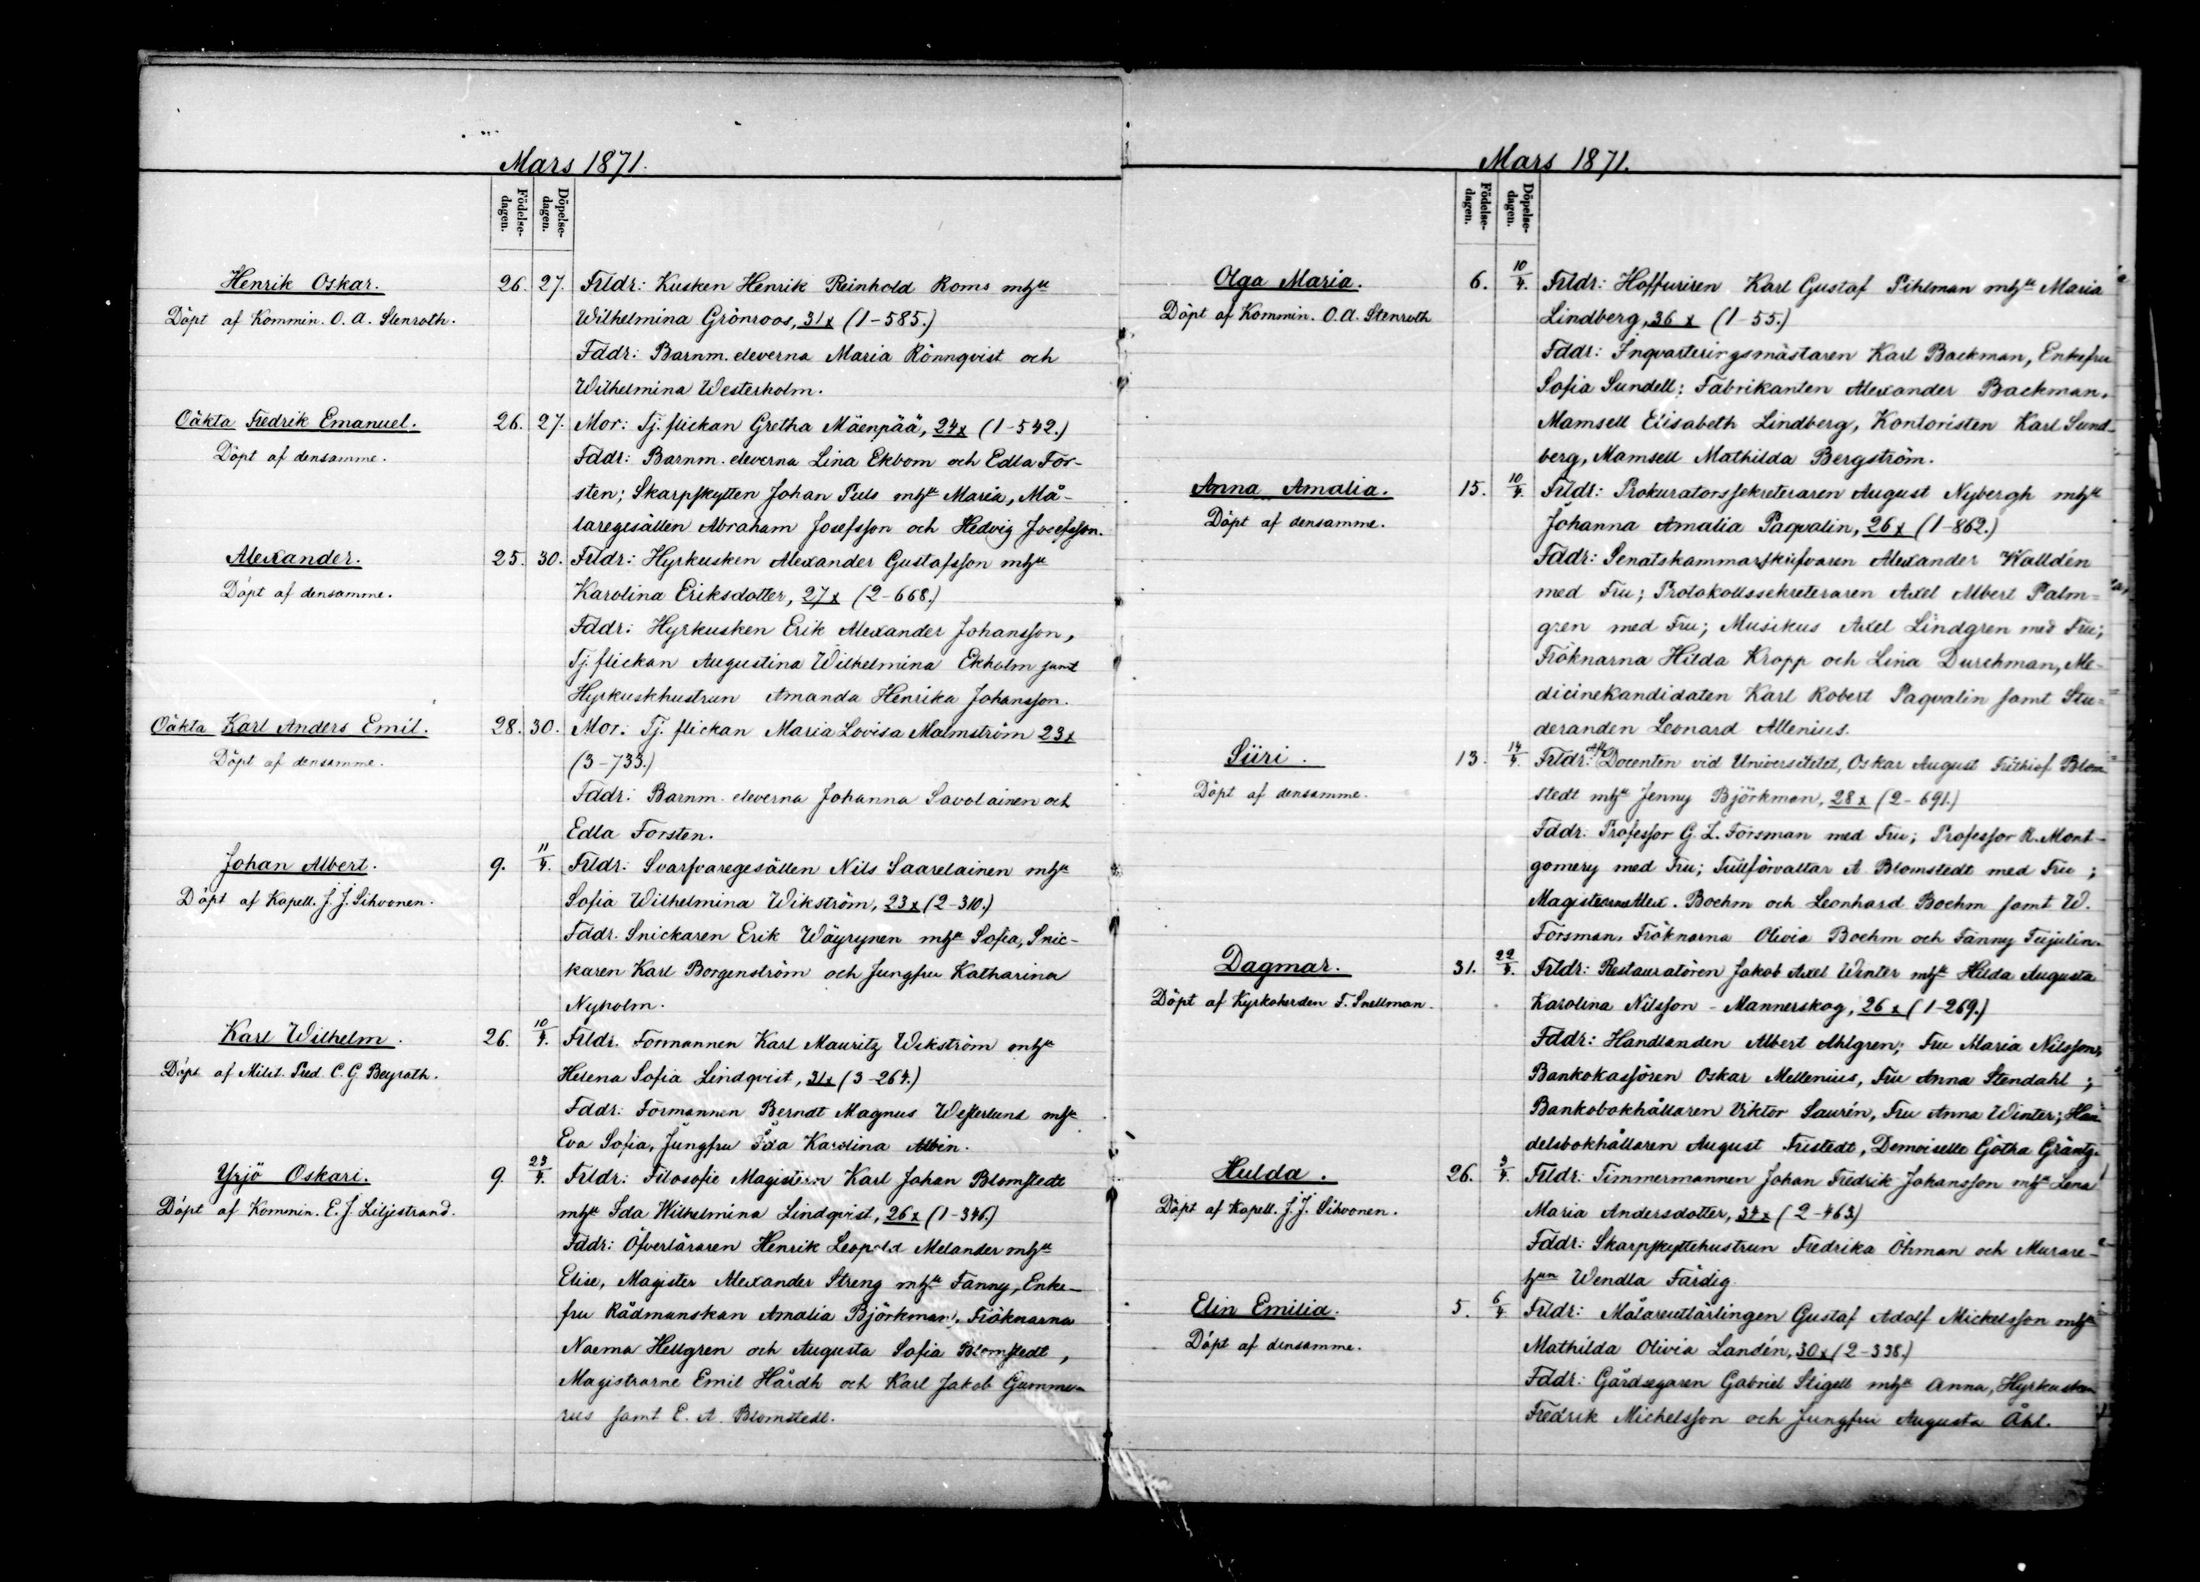 Mars 1871.
Födelse-
dagen.
Döpelse-
dagen.
Henrik Oskar.
26. 27. Frldr: Kusken Henrik Reinhold Roms mhu
Döpt af Kommin. O. A. Stenroth.
Wilhelmina Grönroos, 31 x (1-585.)
Fddr: Barnm. eleverna Maria Rönnqvist och
Wilhelmina Westerholm.
Oäkta Fredrik Emanuel.
26. 27. Mor: Tj. flickan Gretha Mäenpää, 24 x (1-542.)
Döpt af densamme.
Fddr: Barnm. eleverna Lina Ekbom och Edla For-
sten; Skarpskytten Johan Puls mhu Maria, Må-
laregesällen Abraham Josefsson och Hedvig Josefsson.
Alexander.
25. 30. Frldr: Hyrkusken Alexander Gustafsson mhu
Döpt af densamme.
Karolina Eriksdotter, 27 x (2-668.)
Fddr: Hyrkusken Erik Alexander Johansson,
Tj. flickan Augustina Wilhelmina Ekholm samt
Hyrkuskhustrun Amanda Henrika Johansson.
Oäkta Karl Anders Emil.
28. 30. Mor: Tj. flickan Maria Lovisa Malmström 23 x
Döpt af densamme.
(3-733.)
Fddr: Barnm. eleverna Johanna Savolainen och
Edla Forsten.
Johan Albert.
9. 11/4. Frldr: Svarfvaregesällen Nils Saarelainen mhu
Döpt af Kapell. J. J. Sihvonen.
Sofia Wilhelmina Wikström, 23 x (2-310.)
Fddr. Snickaren Erik Wäyrynen mhu Sofia, Snic-
karen Karl Borgenström och Jungfru Katharina
Nyholm.
Karl Wilhelm.
26. 10/4. Frldr. Formannen Karl Mauritz Wikström mhu
Döpt af Milit. Pred. C. G. Beyrath.
Helena Sofia Lindqvist, 31 x (3-264.)
Fddr: Formannen Berndt Magnus Westerlund mhu
Eva Sofia, Jungfru Ida Karolina Albin.
Yrjö Oskari.
9. 23/4. Frldr: Filosofie Magistern Karl Johan Blomstedt
Döpt af Kommin. E. J. Liljestrand.
mhu Ida Wilhelmina Lindqvist, 26 x (1-346.)
Fddr: Öfverläraren Henrik Leopold Melander mhu
Elise, Magister Alexander Streng mhu Fanny, Enke-
fru Rådmanskan Amalia Björkman, Fröknarna
Naema Hellgren och Augusta Sofia Blomstedt,
Magistrarne Emil Hårdh och Karl Jakob Gumme-
rus samt E. A. Blomstedt.
Mars 1871.
Födelse-
dagen.
Döpelse-
dagen.
Olga Maria.
6. 10/4. Frldr: Hoffuriren Karl Gustaf Pihlman mhu Maria
Döpt af Kommin. O. A. Stenroth
Lindberg, 36 x (1-55.)
Fddr: Inqvarteringsmästaren Karl Backman, Enkefru
Sofia Sundell; Fabrikanten Alexander Backman,
Mamsell Elisabeth Lindberg, Kontoristen Karl Sund-
berg, Mamsell Mathilda Bergström.
Anna Amalia.
15. 10/4. Frldr: Prokuratorssekreteraren August Nybergh mhu
Döpt af densamme.
Johanna Amalia Paqvalin, 26 x (1-862.)
Fddr: Senatskammarskrifvaren Alexander Walldén
med Fru; Protokollssekreteraren Axel Albert Palm=
gren med Fru; Musikus Axel Lindgren med Fru;
Fröknarna Hilda Kropp och Lina Durchman, Me-
dicinekandidaten Karl Robert Paqvalin samt Stu-
deranden Leonard Allenius.
Siiri.
13. 14/4. Frldr: Docenten vid Universitetet, Oskar August Frithiof Blom-
Döpt af densamme.
stedt mhu Jenny Björkman, 28 x (2-691.)
Fddr: Professor G. Z. Forsman med Fru; Professor R. Mont-
gomery med Fru; Tullförvaltar A. Blomstedt med Fru;
Magistrarne Alex. Boehm och Leonhard Boehm samt W.
Forsman, Fröknarna Olivia Boehm och Fanny
Dagmar.
31. 22/4. Frldr: Restauratören Jakob Axel Winter mhu Hilda Augusta
Döpt af Kyrkoherden F. Snellman.
Karolina Nilsson-Mannerskog, 26 x (1-269.)
Fddr: Handlanden Albert Ahlgren; Fru Maria Nilsson,
Bankokassören Oskar Mellenius, Fru Anna Stendahl;
Bankobokhållaren Viktor Saurén, Fru Anna Winter; Han
delsbokhållaren August Fristedt, Demoiselle Götha Gräntz.
Hulda.
26. 3/4. Frldr: Timmermannen Johan Fredrik Johansson mhu Lena
Döpt af Kapell. J. J. Sihvonen.
Maria Andersdotter, 34 x (2-463)
Fddr: Skarpskyttehustrun Fredrika Öhman och Murare-
hun Wendla Färdig
Elin Emilia.
5. 6/4. Frldr: Målareutlärlingen Gustaf Adolf Mickelsson mhu
Döpt af densamme.
Mathilda Olivia Landén, 30 x (2-338.)
Fddr: Gårdsegaren Gabriel Stigell mhu Anna, Hyrkusken
Fredrik Michelsson och Jungfru Augusta Åhl.